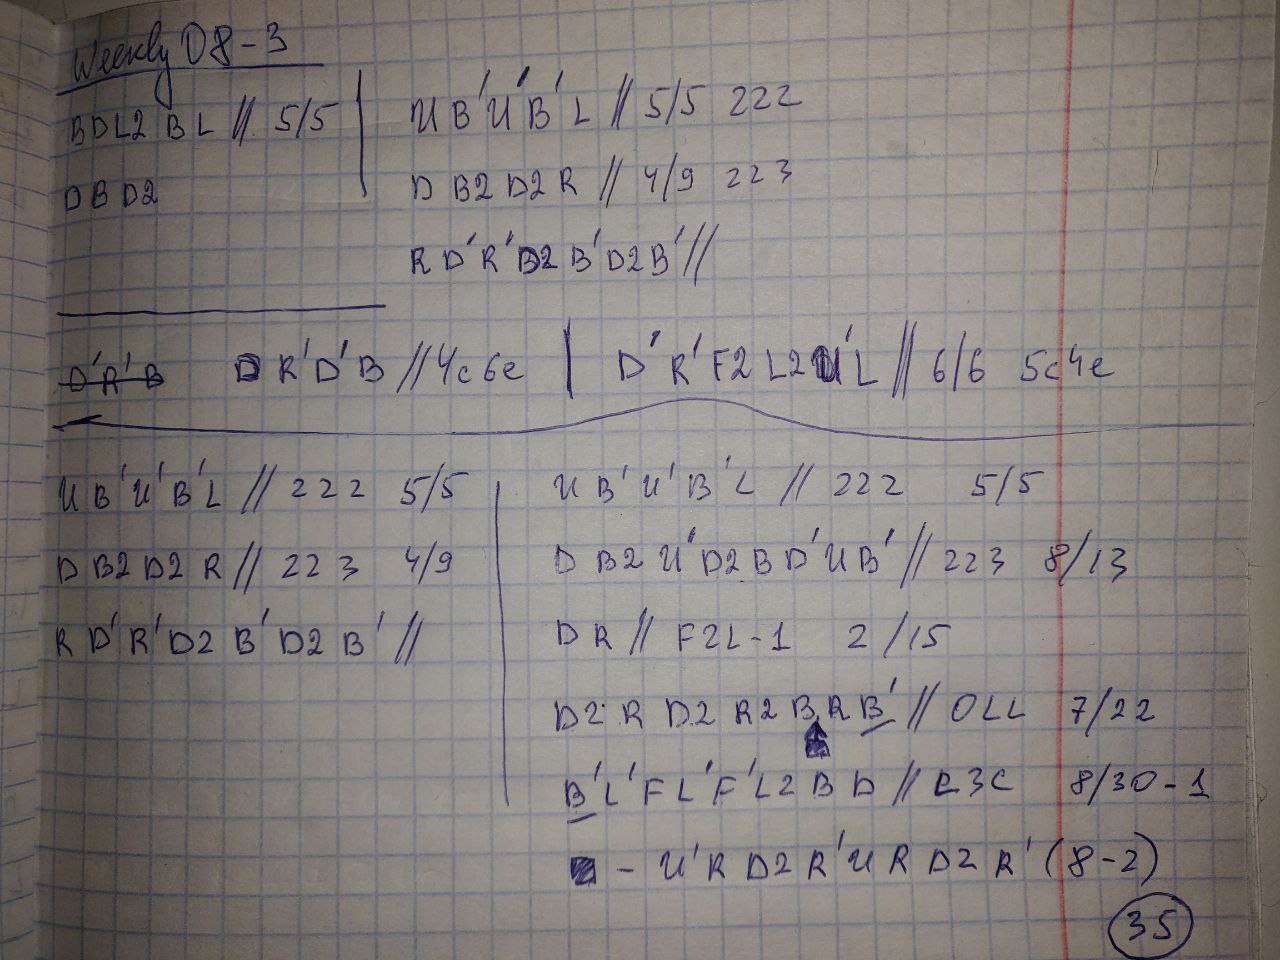 Weekly 08-3
BDL2 BL // 5/5
DBD2
U B' U' B' L // 5/5 222
D B2 D2 R // 4/9 223
R D' R' D2 B' D2 B' //
D' R' B D R' D' B // 4c 6e
D' R' F2 L2 U' L // 6/6 5c4e
U B' U' B' L // 222 5/5
D B2 D2 R // 223 4/9
R D' R' D2 B' D2 B' //
U B' U' B' L // 222 5/5
D B2 U' D2 B D' U B' // 223 8/13
D R // F2L-1 2/15
D2 R D2 R2 B R B' // OLL 7/22
B' L' F L' F' L2 B D // L3C 8/30-1
- U' R D2 R' U R D2 R' (8-2)
35